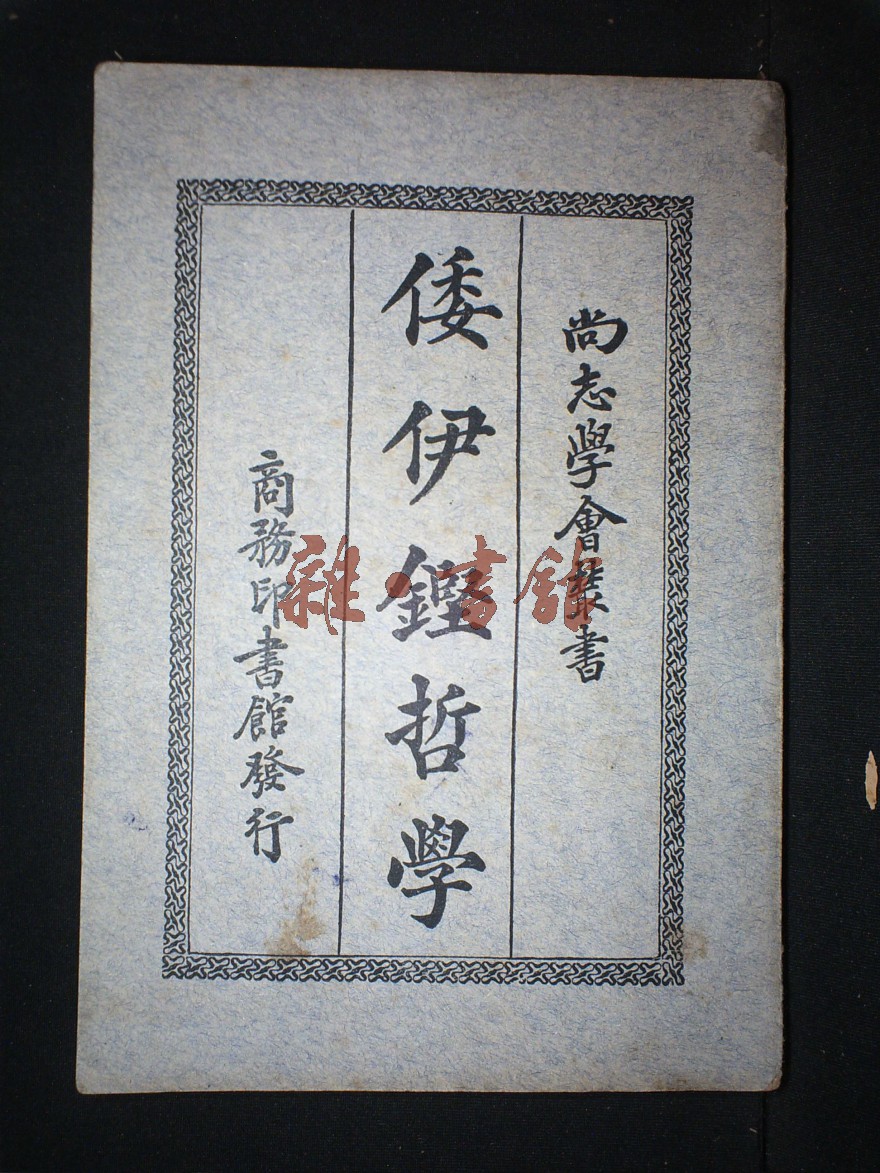 尚志學會叢書
倭伊鏗哲學
商務印書館發行
雜·書館